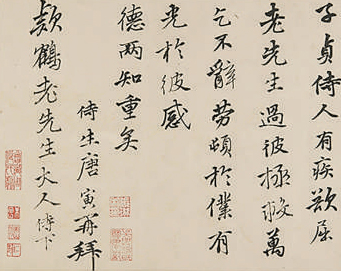 子貞侍人有疾欲屈
老先生過彼拯救萬
乞不辭勞頓於僕有
光於彼感
德两知重矣
侍生唐寅再拜
鶴老先生大人侍下